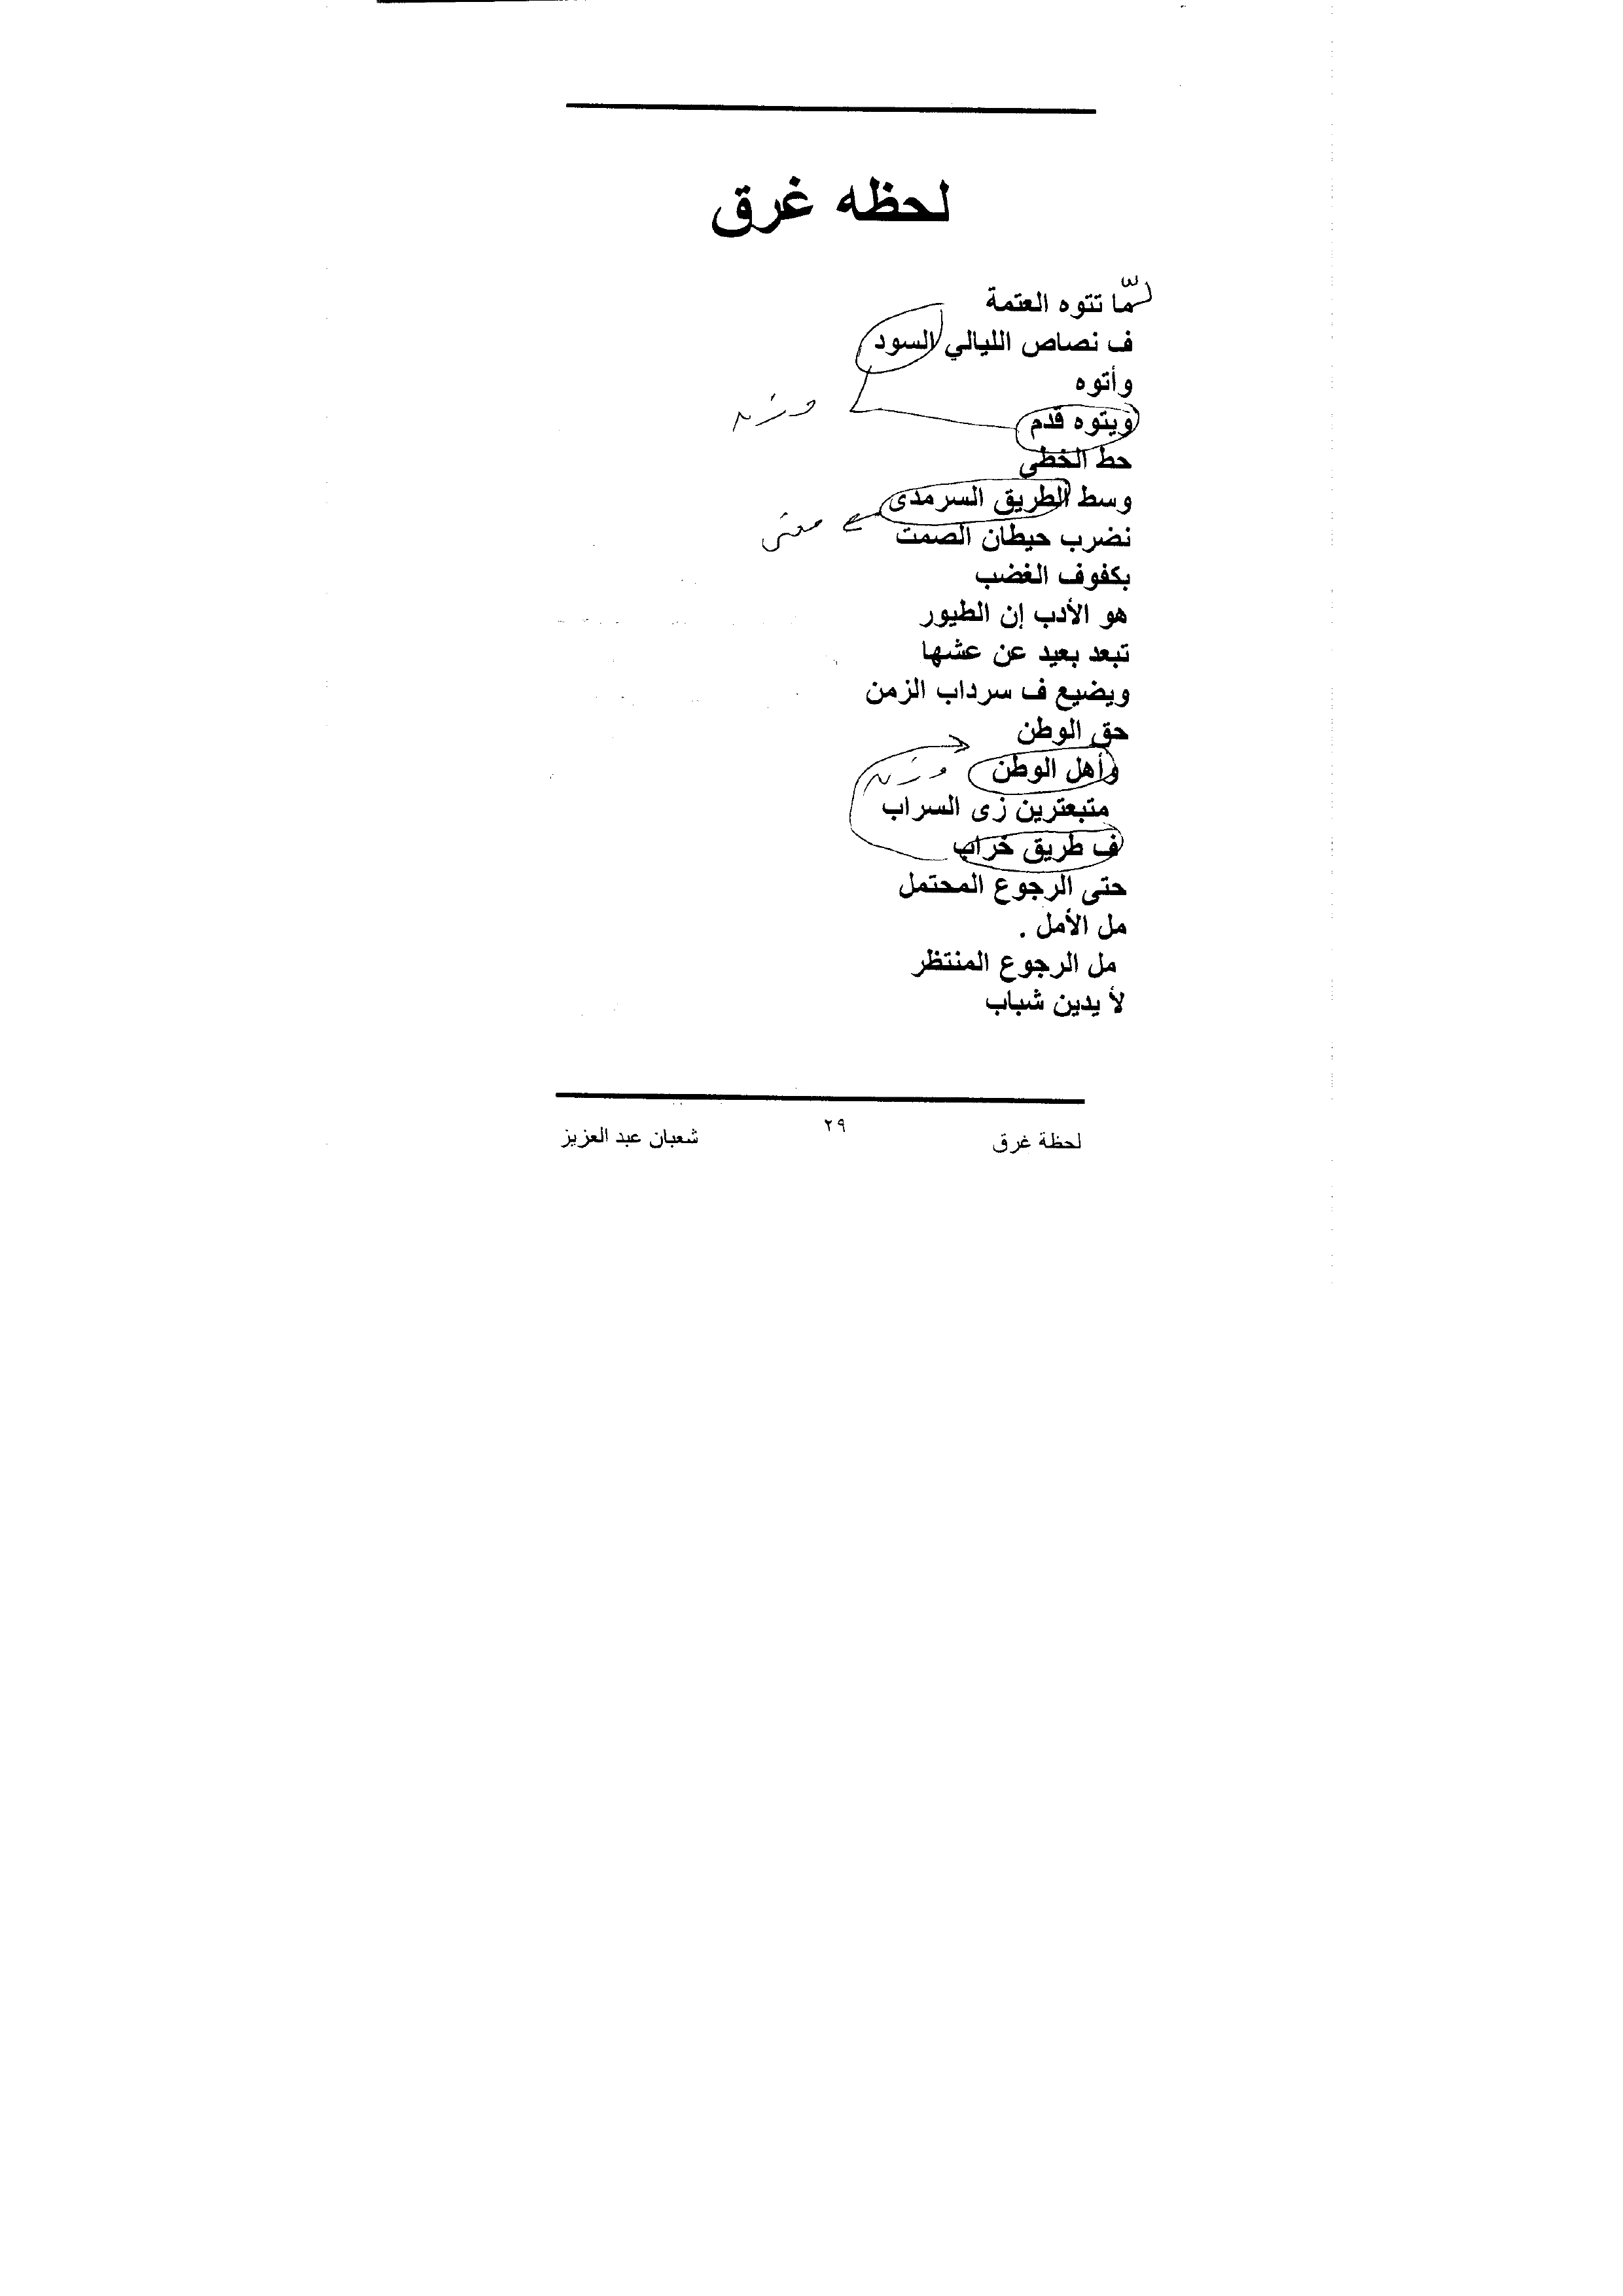 لحظه غرق
لمّا تتوه العتمة
ف نصاص الليالي السود
وأتوه
ويتوه قدم
وزن
حط الخطى
وسط الطريق السرمدى
معنى
نضرب حيطان الصمت
بكفوف الغضب
هو الأدب إن الطيور
تبعد بعيد عن عشها
ويضيع ف سرداب الزمن
حق الوطن
وأهل الوطن
وزن
متبعترين زى السراب
ف طريق خراب
حتى الرجوع المحتمل
مل الأمل .
مل الرجوع المنتظر
لأ يدين شباب
لحظة غرق
٢٩
شعبان عبد العزيز